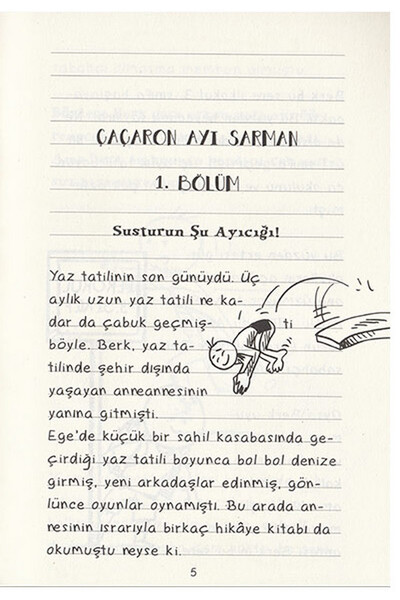 ÇAÇARON AYI SARMAN
1. BÖLÜM
Susturun Şu Ayıcığı!
Yaz tatilinin son günüydü. Üç
aylık uzun yaz tatili ne ka-
dar da çabuk geçmiş- ti
böyle. Berk, yaz ta-
tilinde şehir dışında
yaşayan anneannesinin
yanına gitmişti.
Ege'de küçük bir sahil kasabasında ge-
çirdiği yaz tatili boyunca bol bol denize
girmiş, yeni arkadaşlar edinmiş, gön-
lünce oyunlar oynamıştı. Bu arada an-
nesinin ısrarıyla birkaç hikâye kitabı da
okumuştu neyse ki.
5